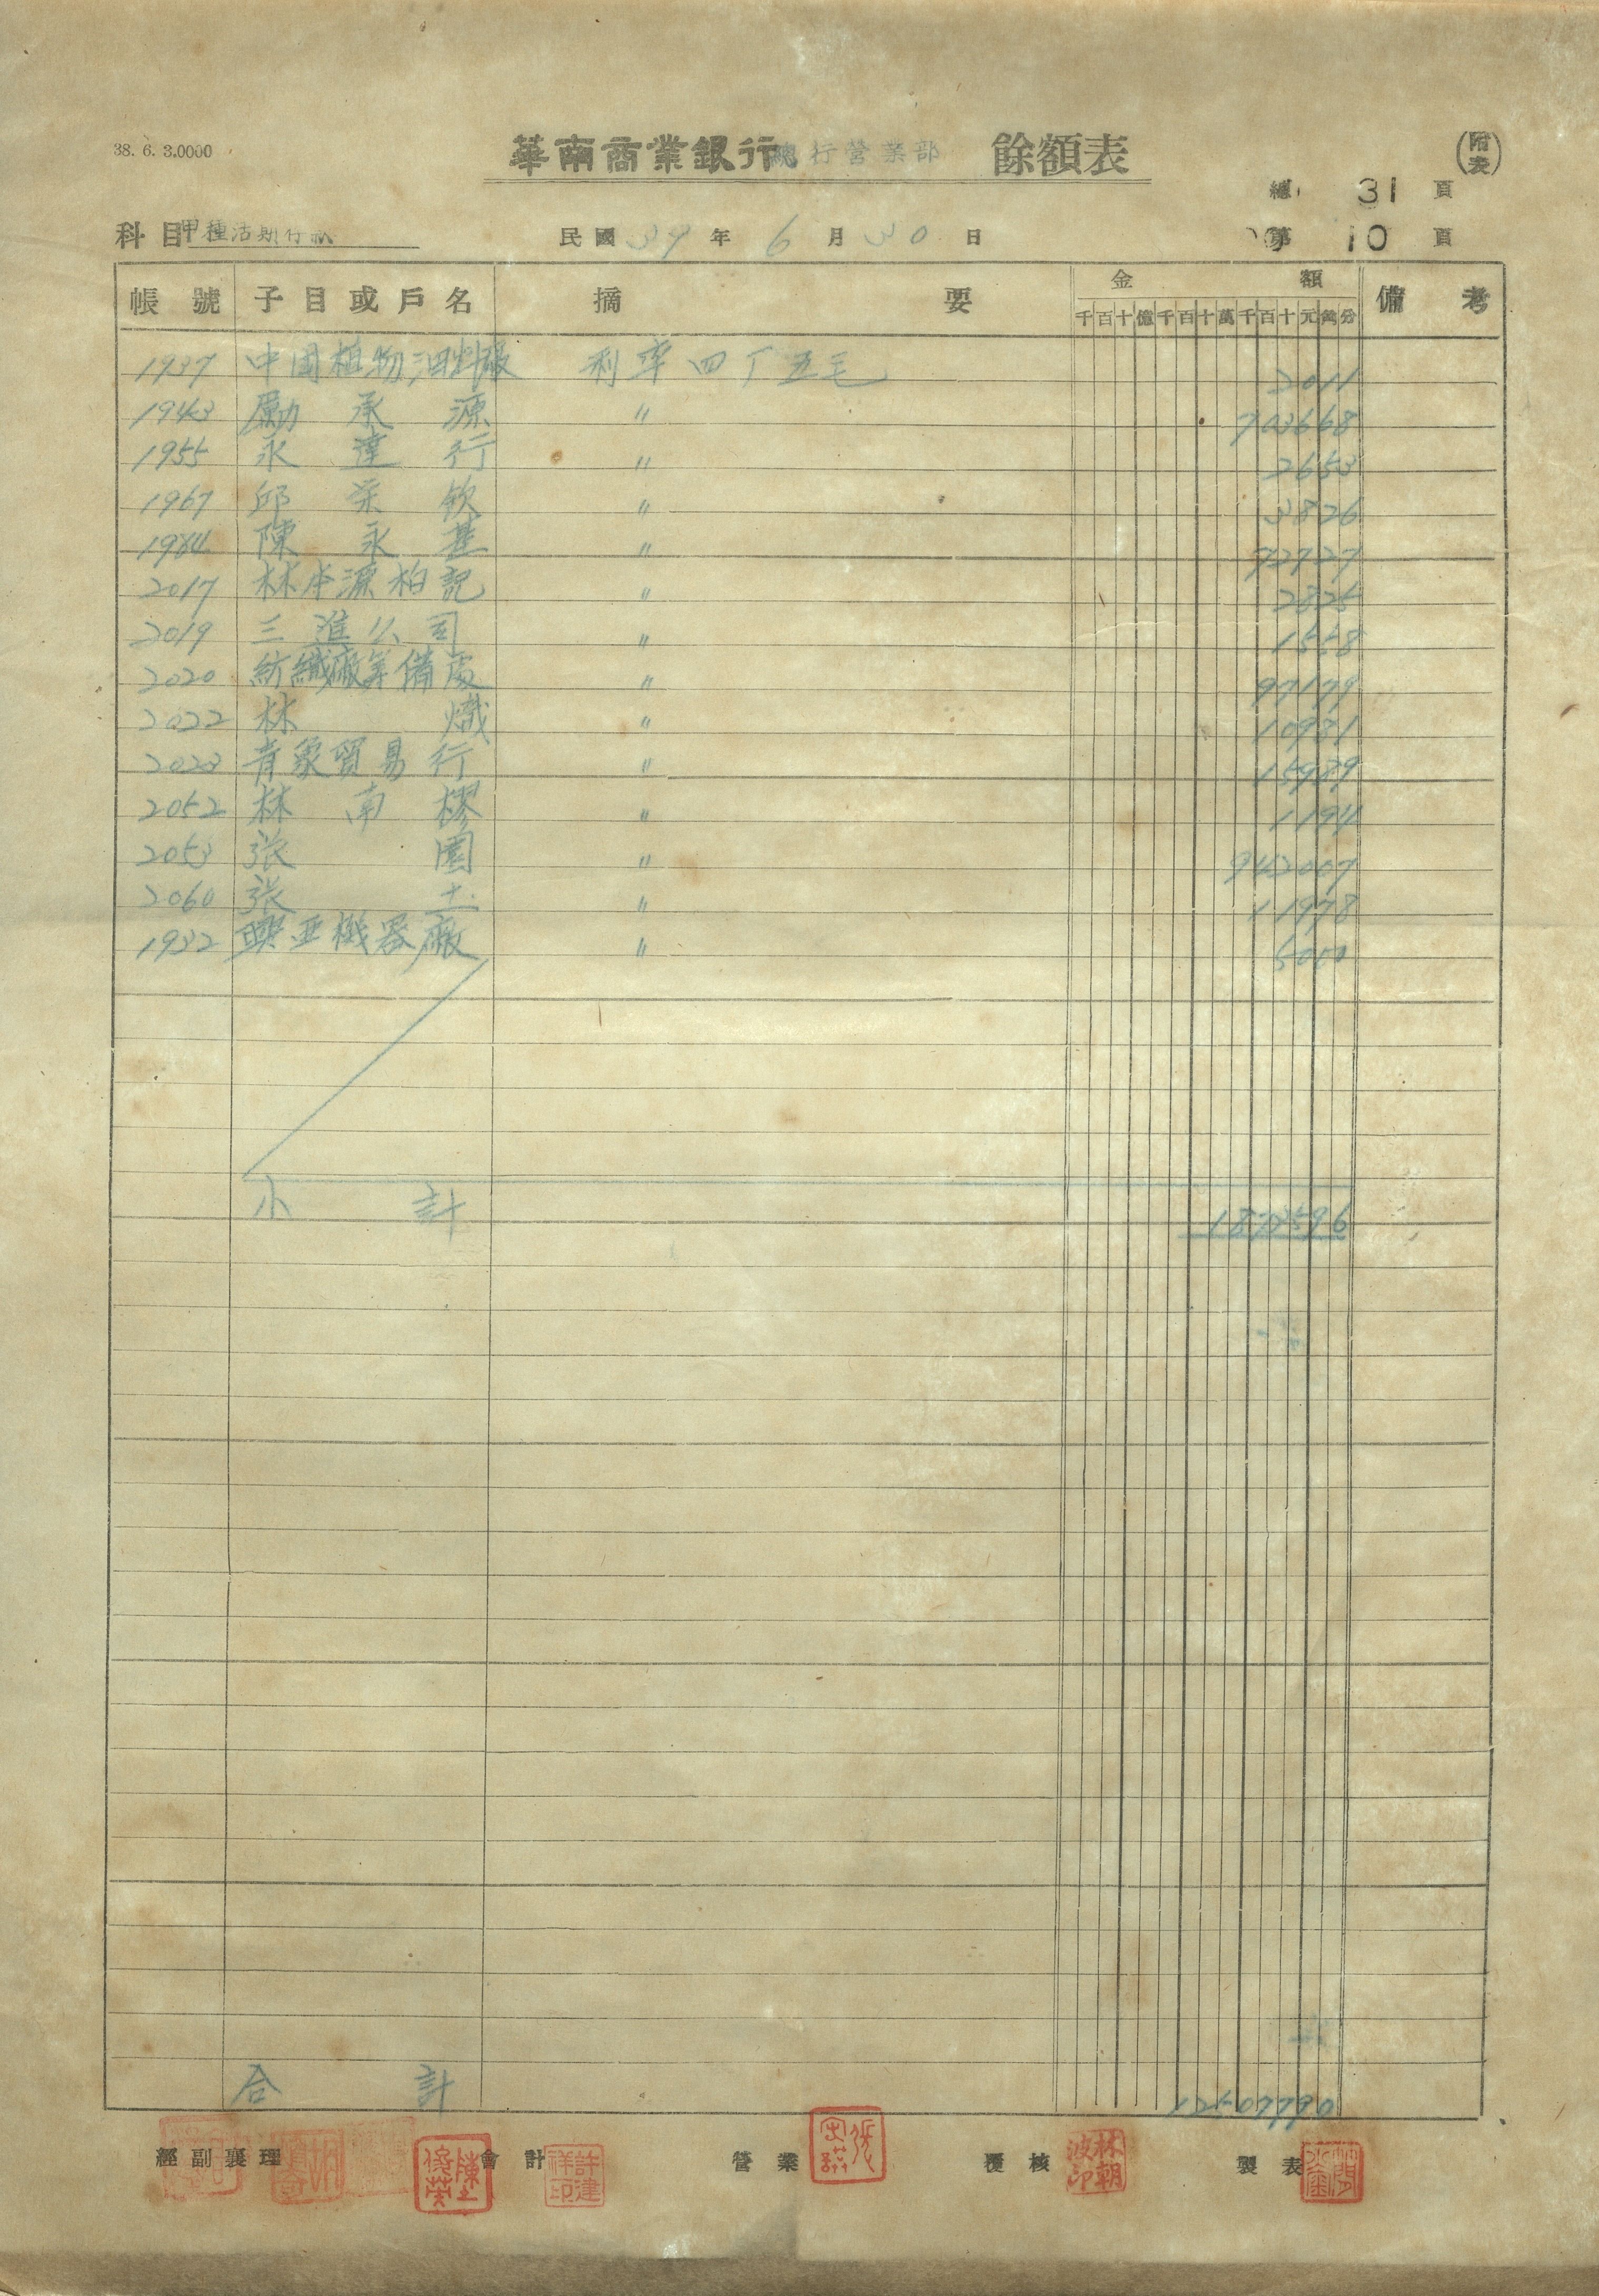 38. 6. 3.0000
華南商業銀行總行營業部 餘額表
附表
總 31 頁
科目甲種活期存款 民國39年6月30日 第 10 頁
帳號 子目或戶名 摘要 金額 備考
千百十億千百十萬千百十元角分
1937 中國植物油料廠 利率四丁五毛 2011
1943 勵承源 〃 703668
1955 永達行 〃 2653
1967 邱 欽 〃 3826
1984 陳永甚 〃
2017 林本源柏記 〃 2825
2019 三進公司 〃 1558
2020 紡織廠筹備處 〃 97179
2022 林熾 〃 10981
2023 青象貿易行 〃 15989
2052 林南樛 〃 1194
2053 張園 〃 942007
2060 張土 〃 11978
1932 興亞機器廠 〃 5000
小計
合計 12507790
經副襄理 會計 營業 覆核 製表
許建祥印
林朝波印